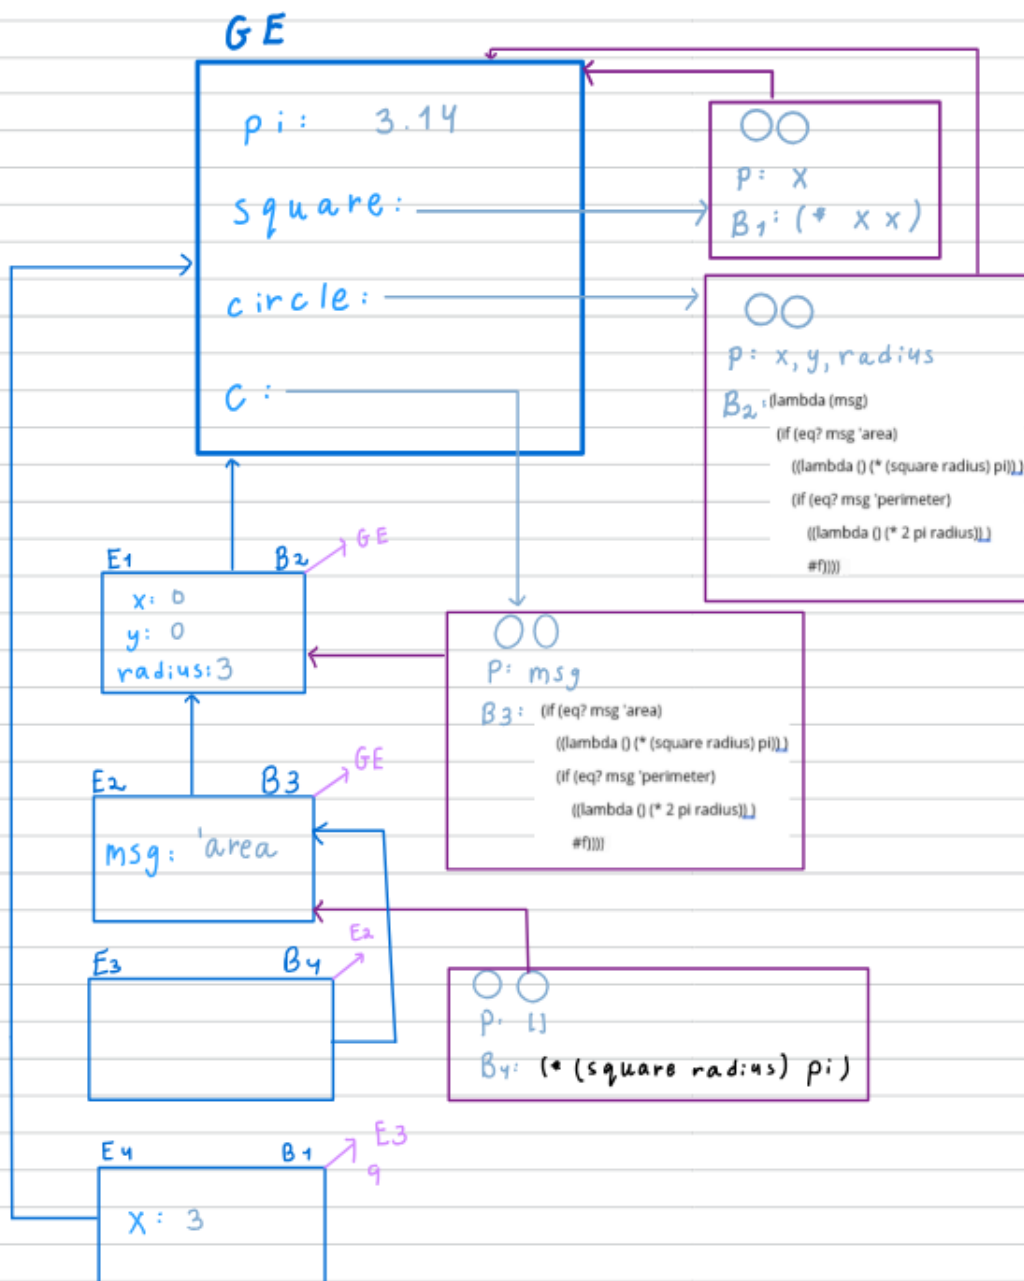 GE
pi: 3.14
square:
circle:
C:
P: X
B1: (* x x)
P: x, y, radius
B2: (lambda (msg)
(if (eq? msg 'area)
((lambda () (* (square radius) pi)) )
(if (eq? msg 'perimeter)
((lambda () (* 2 pi radius)) )
#f))))
E1 B2 GE
x: 0
y: 0
radius: 3
P: msg
B3: (if (eq? msg 'area)
((lambda () (* (square radius) pi)) )
(if (eq? msg 'perimeter)
((lambda () (* 2 pi radius)) )
#f))))
E2 B3 GE
msg: 'area
E3 B4 E2
P: []
B4: (* (square radius) pi)
E4 B1 E3
9
X: 3